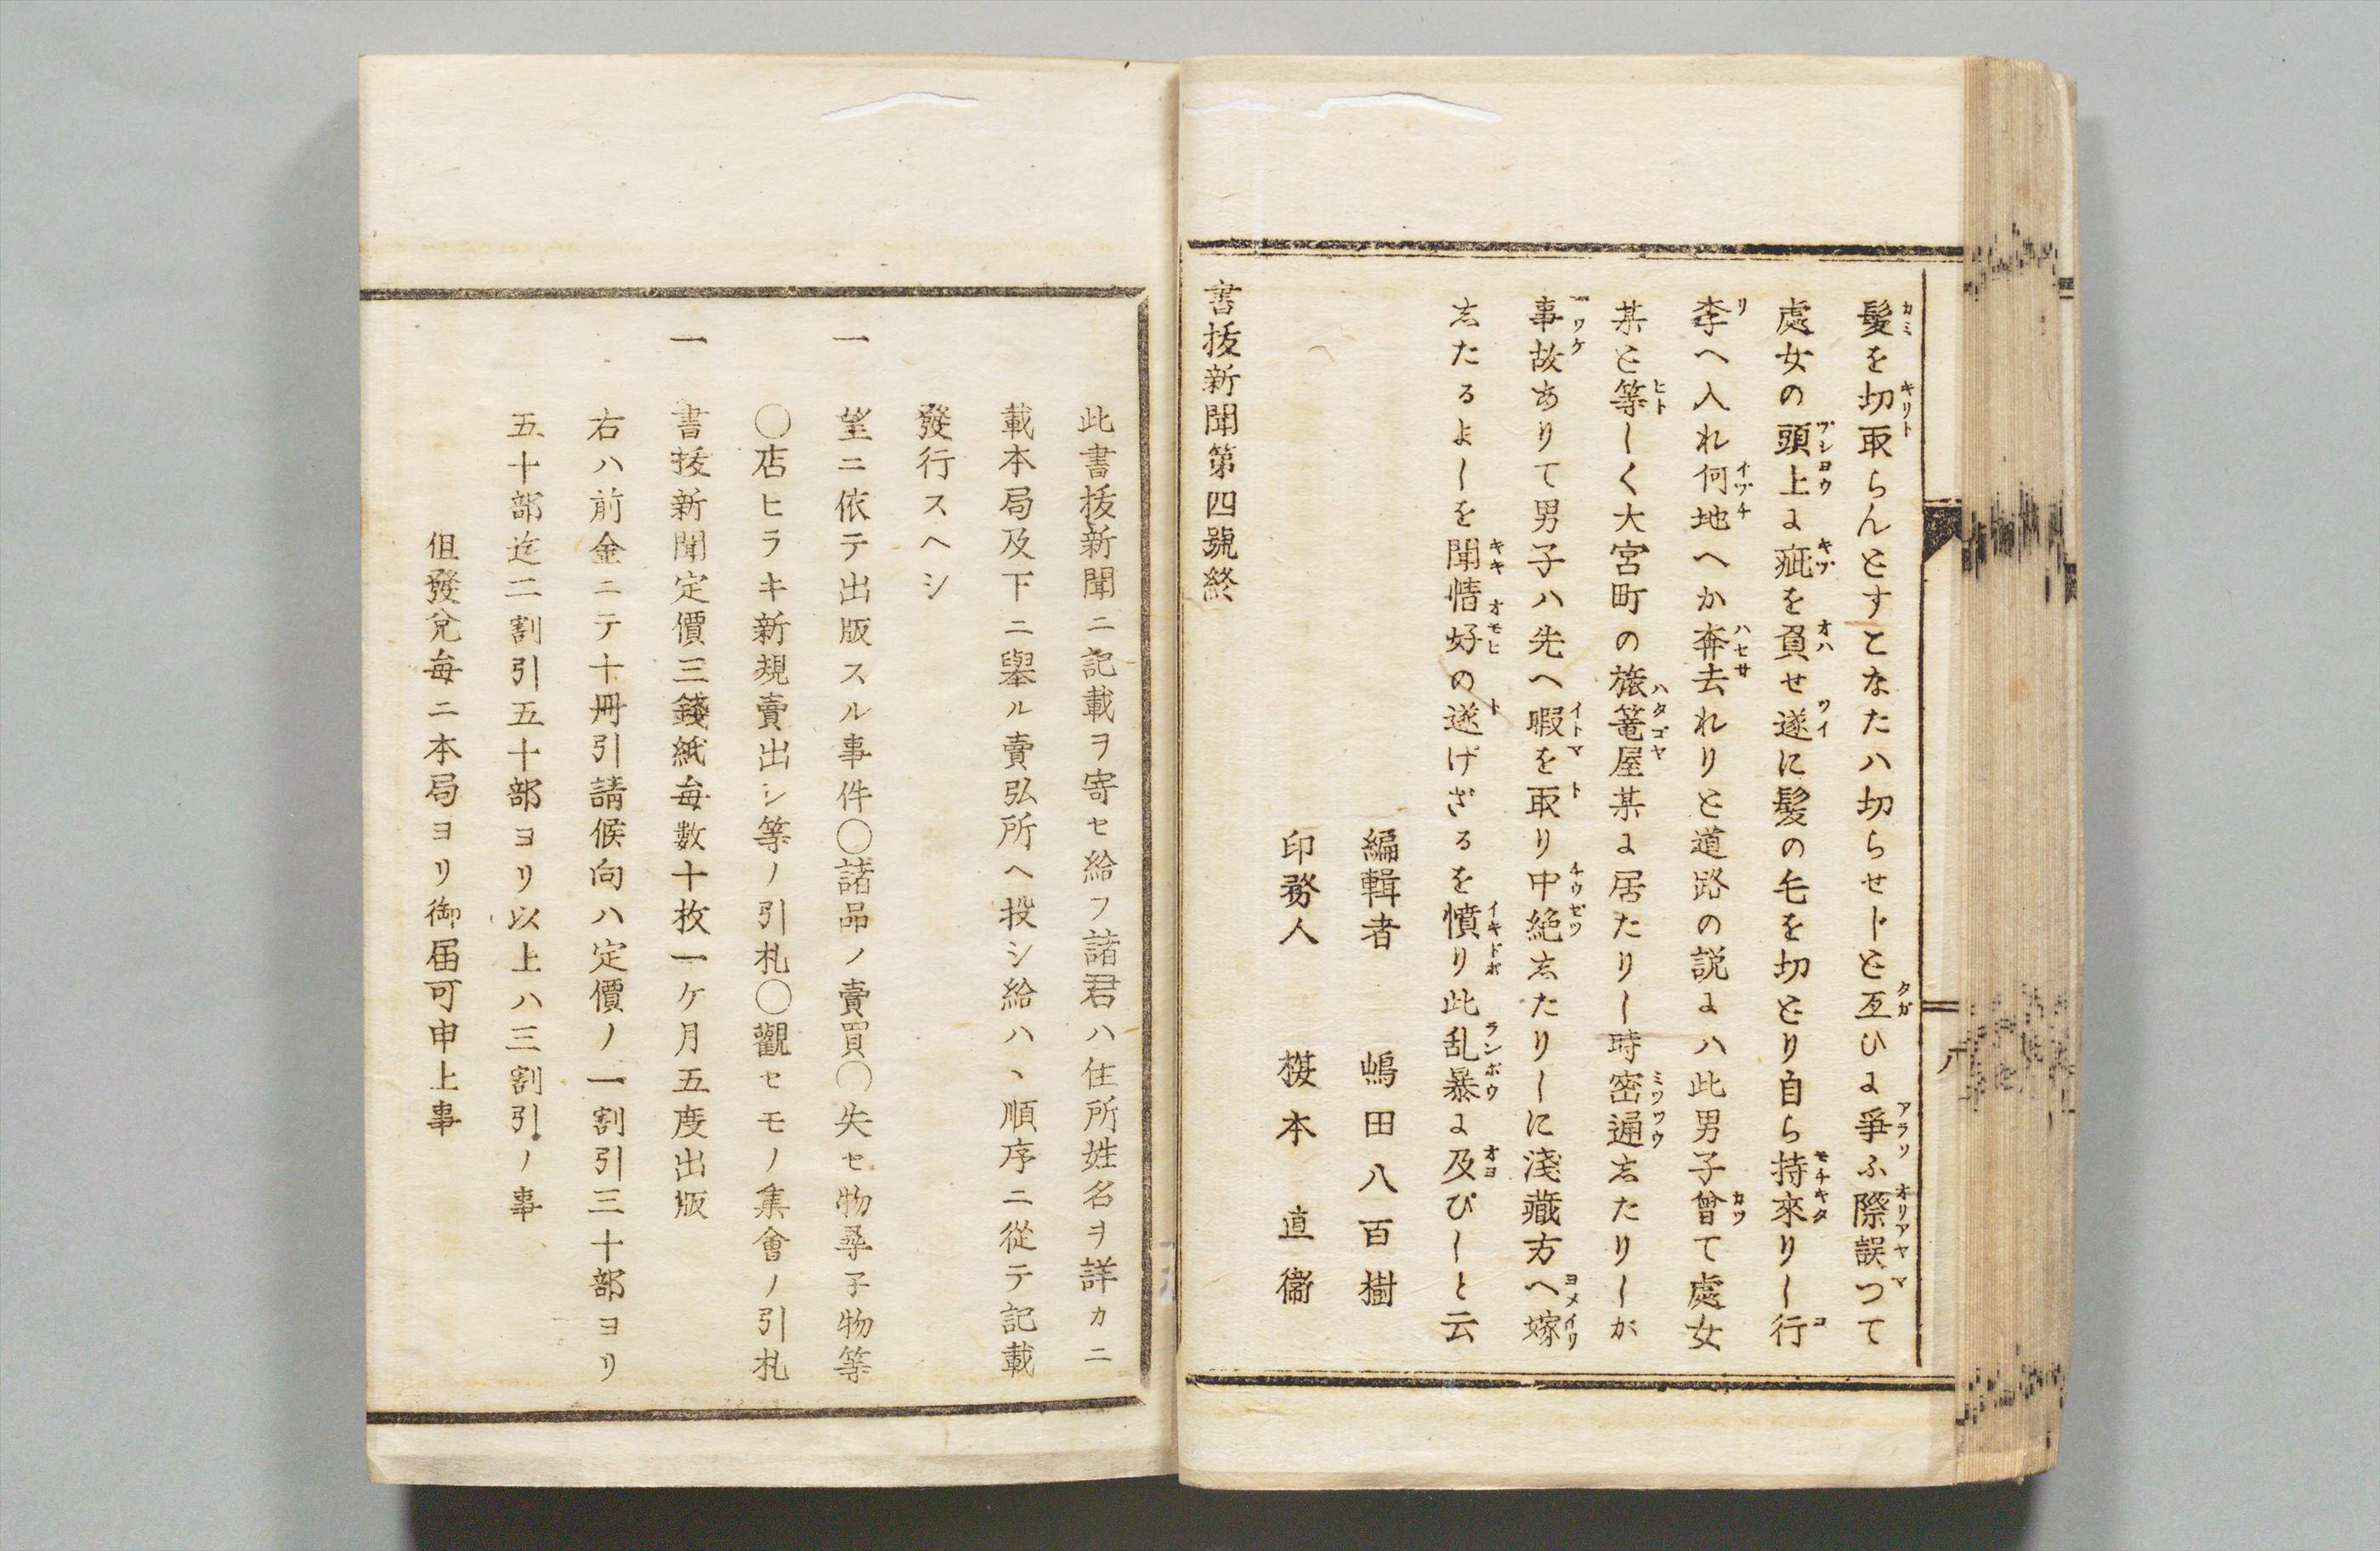 髮を切取らんとすとなたハ切らせじと互ひよ爭ふ際誤つて
處女の頭上よ疵を負せ遂に髮の毛を切とり自ら持來りし行
李へ入れ何地へか奔去れりと道路の説よハ此男子曾て處女
某と等しく大宮町の旅篭屋某よ居たりし時密通志たりしが
事故ありて男子ハ先へ暇を取り中絶志たりしに淺藏方へ嫁
志たるよしを聞情好の遂げざるを憤り此乱暴よ及びしと云
編輯者 嶋田八百樹
印務人 榎本直衞
書抜新聞第四號終
此書抜新聞ニ記載ヲ寄セ給フ諸君ハ住所姓名ヲ詳カニ
載本局及下ニ舉ル賣弘所ヘ投シ給ハヽ順序ニ從テ記載
發行スヘシ
一 望ニ依テ出版スル事件〇諸品ノ賣買〇失セ物尋子物等
〇店ヒラキ新規賣出シ等ノ引札〇觀セモノ集會ノ引札
一 書抜新聞定價三錢紙毎數十枚一ケ月五度出版
右ハ前金ニテ十冊引請候向ハ定價ノ一割引三十部ヨリ
五十部迄二割引五十部ヨリ以上ハ三割引ノ事
但發兌毎ニ本局ヨリ御届可申上事